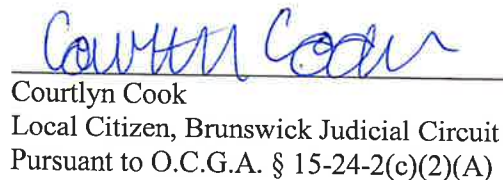 Courtlyn Cook
Courtlyn Cook
Local Citizen, Brunswick Judicial Circuit
Pursuant to O.C.G.A. § 15-24-2(c)(2)(A)